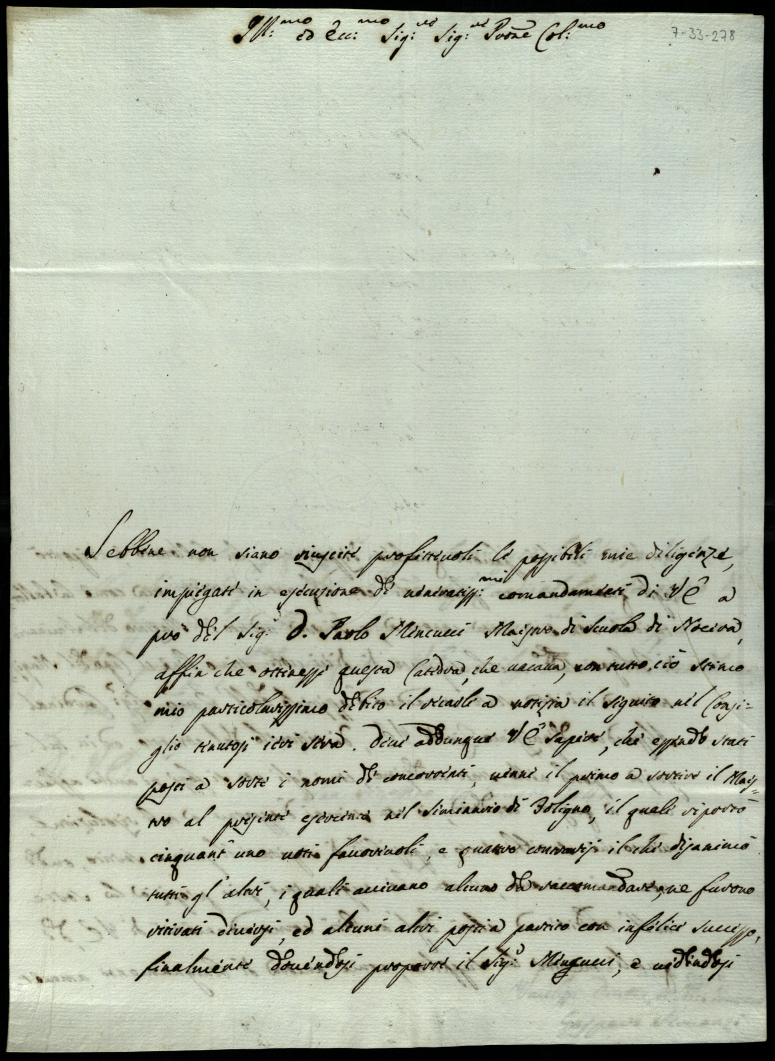 Ill:mo ed Ecc:mo Sig:re Sig:re Prone Col:mo
7-33-278
Sebbene non siano riuscite profittevoli le possibili mie diligenze,
impiegate in esecuzione de veneratiss:mi comandamenti di VE a
prò del Sig:r D. Paolo Mencucci Maestro di Scuola di Nocera,
affin che ottenesse questa Catedra, che vacava, con tutto ciò stimo
mio particolarissimo debito il recarle a notizia il seguito nel Consi-
glio tenutosi ieri sera. Deve addunque VE sapere, che essendo stati
posti a sorte i nomi de concorrenti, venne il primo a sortire il Maes-
tro al presente esercente nel Seminario di Foligno, il quale riportò
cinquant'uno voti favorevoli, e quattro contrarij il che disanimò
tutti gl'altri, i quali avevano alcuno da raccomandare, ne furono
ritirati diversi, ed alcuni altri posti a partito con infelice successo,
finalmente dovendosi proporre il Sig:r Mengucci, e vedendosi